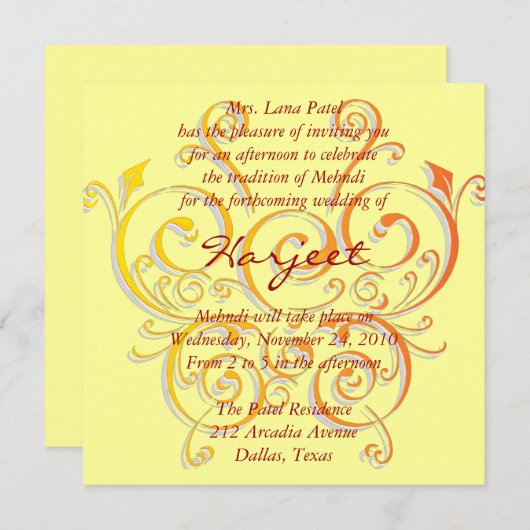 Mrs. Lana Patel
has the pleasure of inviting you
for an afternoon to celebrate
the tradition of Mehndi
for the forthcoming wedding of
Harjeet
Mehndi will take place on
Wednesday, November 24, 2010
From 2 to 5 in the afternoon
The Patel Residence
212 Arcadia Avenue
Dallas, Texas